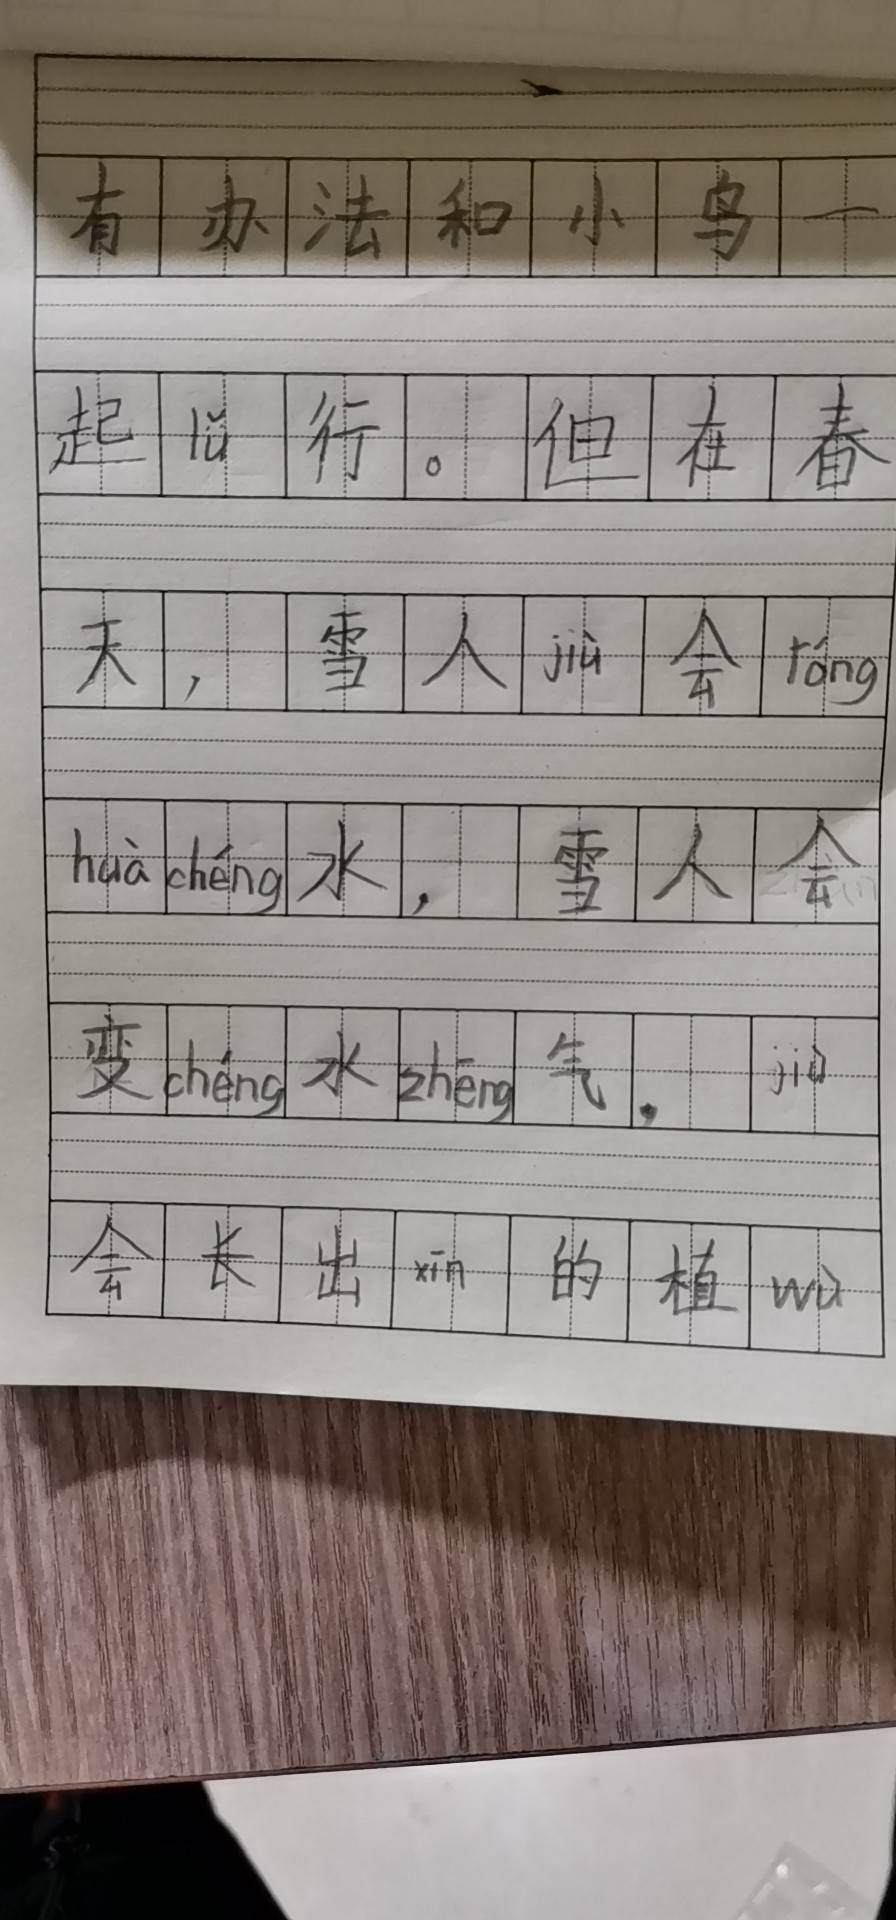 有办法和小鸟一
起lǚ行。但在春
天，雪人jiù会róng
huà chéng水，雪人会
变chéng水zhēng气，jiù
会长出xīn的植wù